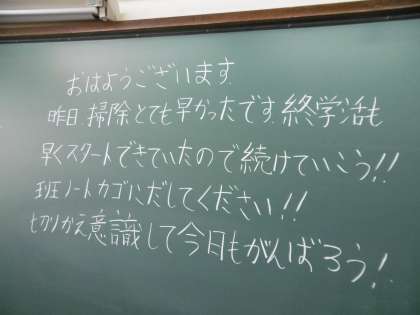 おはようございます
昨日掃除とても早かったです。終学活も
早くスタートできていたので続けていこう!!
班ノートカゴにだしてください!!
切りかえ意識して今日もがんばろう!